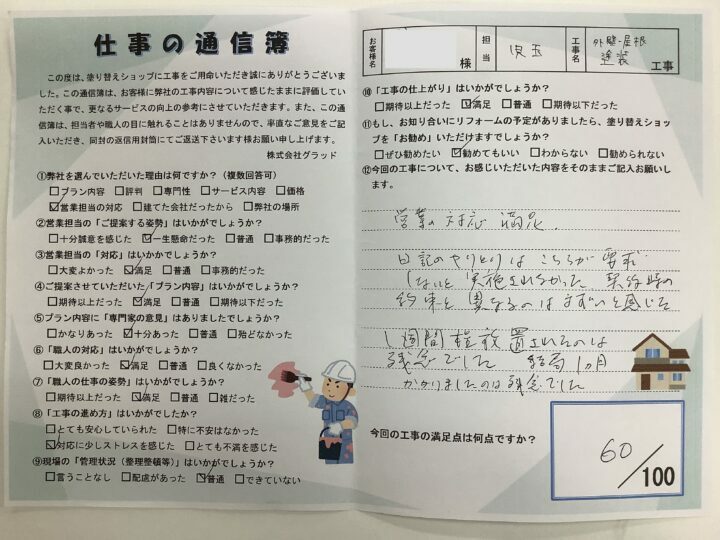 仕事の通信簿
この度は、塗り替えショップに工事をご用命いただき誠にありがとうございま
した。この通信簿は、お客様に弊社の工事内容について感じたままに評価してい
ただく事で、更なるサービスの向上の参考にさせていただきます。また、この通
信簿は、担当者や職人の目に触れることはありませんので、率直なご意見をご記
入いただき、同封の返信用封筒にてご返送下さいます様お願い申し上げます。
株式会社グラッド
①弊社を選んでいただいた理由は何ですか？（複数回答可）
□プラン内容 □評判 □専門性 □サービス内容 □価格
☑営業担当の対応 □建てた会社だったから □弊社の場所
②営業担当の「ご提案する姿勢」はいかがでしょうか？
□十分誠意を感じた ☑一生懸命だった □普通 □事務的だった
③営業担当の「対応」はいかがでしょうか？
□大変よかった ☑満足 □普通 □事務的だった
④ご提案させていただいた「プラン内容」はいかがでしょうか？
□期待以上だった ☑満足 □普通 □期待以下だった
⑤プラン内容に「専門家の意見」はありましたでしょうか？
□かなりあった ☑十分あった □普通 □殆どなかった
⑥「職人の対応」はいかがでしょうか？
□大変良かった ☑満足 □普通 □良くなかった
⑦「職人の仕事の姿勢」はいかがでしょうか？
□期待以上だった ☑満足 □普通 □雑だった
⑧「工事の進め方」はいかがでしたか？
□とても安心していられた □特に不安はなかった
☑対応に少しストレスを感じた □とても不満を感じた
⑨現場の「管理状況（整理整頓等）」はいかがでしょうか？
□言うことなし □配慮があった ☑普通 □できていない
お客様名 様 担当 児玉 工事名 外壁・屋根 塗装 工事
⑩「工事の仕上がり」はいかがでしょうか？
□期待以上だった ☑満足 □普通 □期待以下だった
⑪もし、お知り合いにリフォームの予定がありましたら、塗り替えショッ
プを「お勧め」いただけますでしょうか？
□ぜひ勧めたい ☑勧めてもいい □わからない □勧められない
⑫今回の工事について、お感じいただいた内容をそのままご記入お願いし
ます。
営業の対応 満足.
日記のやりとりは こちらが要求
しないと実施されなかった 契約時の
約束と異なるのはまずいと感じた
1週間程放置されたのは
残念でした 結局1ヵ月
かかりましたのは残念でした
今回の工事の満足点は何点ですか？
60/100